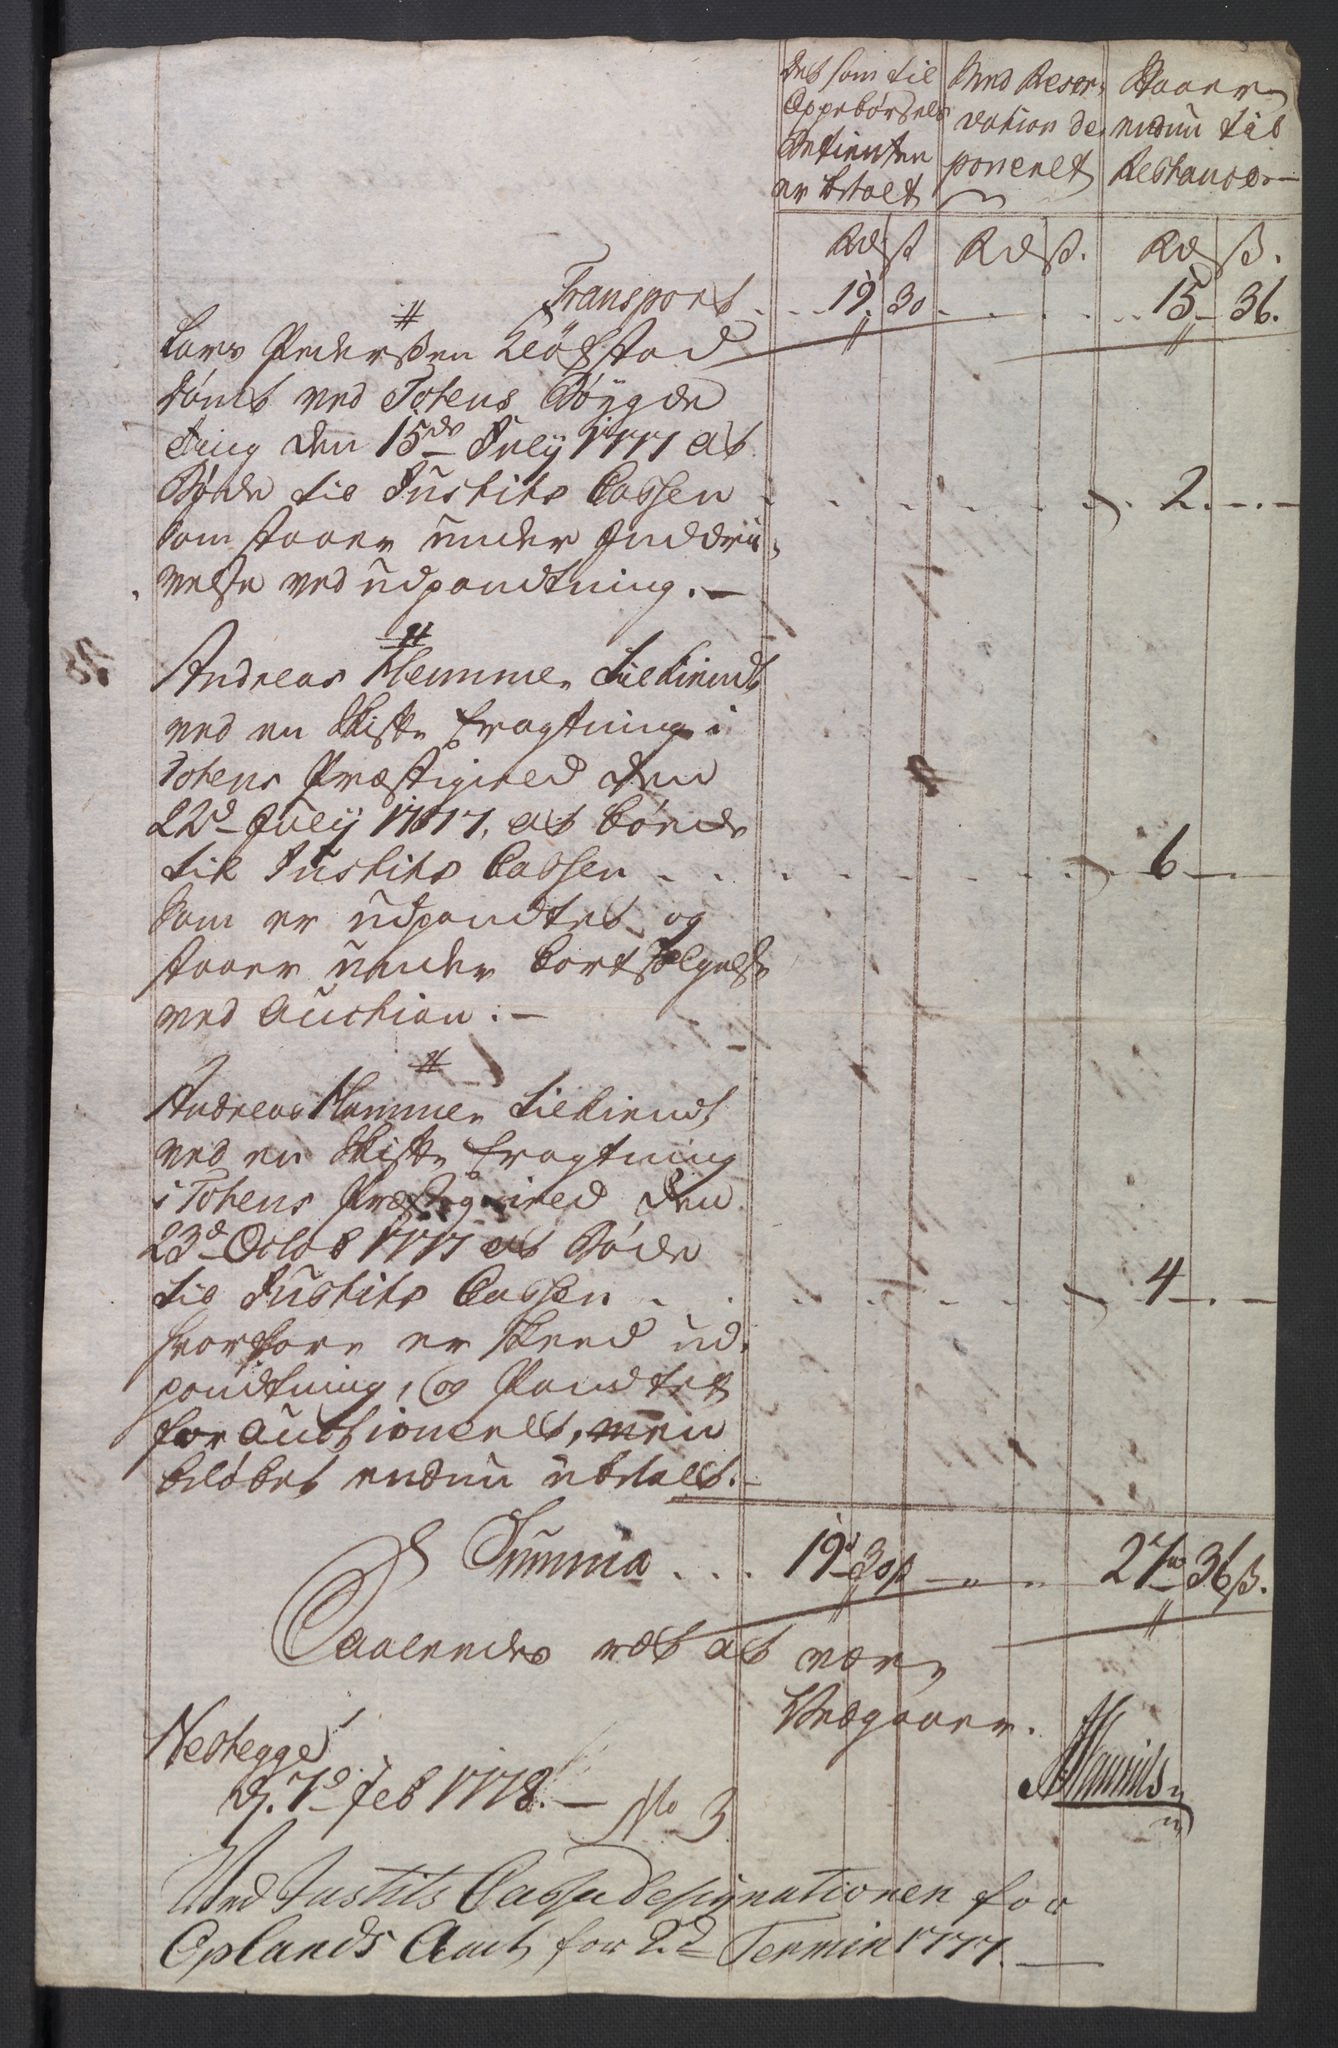 det som til
Oppebørsels
Betienten
er betalt
Med Reser-
vation de-
poneret
Staaer
endnu til
Restance
Rd ß
Rd ß.
Rd ß.
Transport . . . 19. 30 . . . . . 15 - 36.
Lars Pederssen
dømt ved Totens Bøygde
ting den 15de July 1777 at
Bøde til Justits Cassen . . . . . . . 2. - . -
som staaer under Inddri-
velse ved udpandtning. -
Andreas Hemme tilkiendt
ved en Skifte fragtning i
Totens Præstegield den
22d July 1777. at bøde
til Justits Cassen . . . . . . . . 6 - . -
som er udpandtet og
staaer under bortsælgelse
ved Auction. -
Andreas Hemme tilkiendt
ved en Skifte fragtning
i Totens Præstegield den
23d Octob 1777 at Bøde
til Justits Cassen . . . . . . . . 4 - . -
hvorfore er skeed ud-
pandtning, og Pandtet
forauctioneret, men
beløbet endnu ubetalt. -
Summa . . . 19 30ß - „ - „ - 27 36ß.
Saaledes ret at være
Vedgaaer.
Neshegge
d. 7d Feb 1778. -
No 3
Ved Justits Cassa designationen for
Oplands Amt for 2d Termin 1777. -